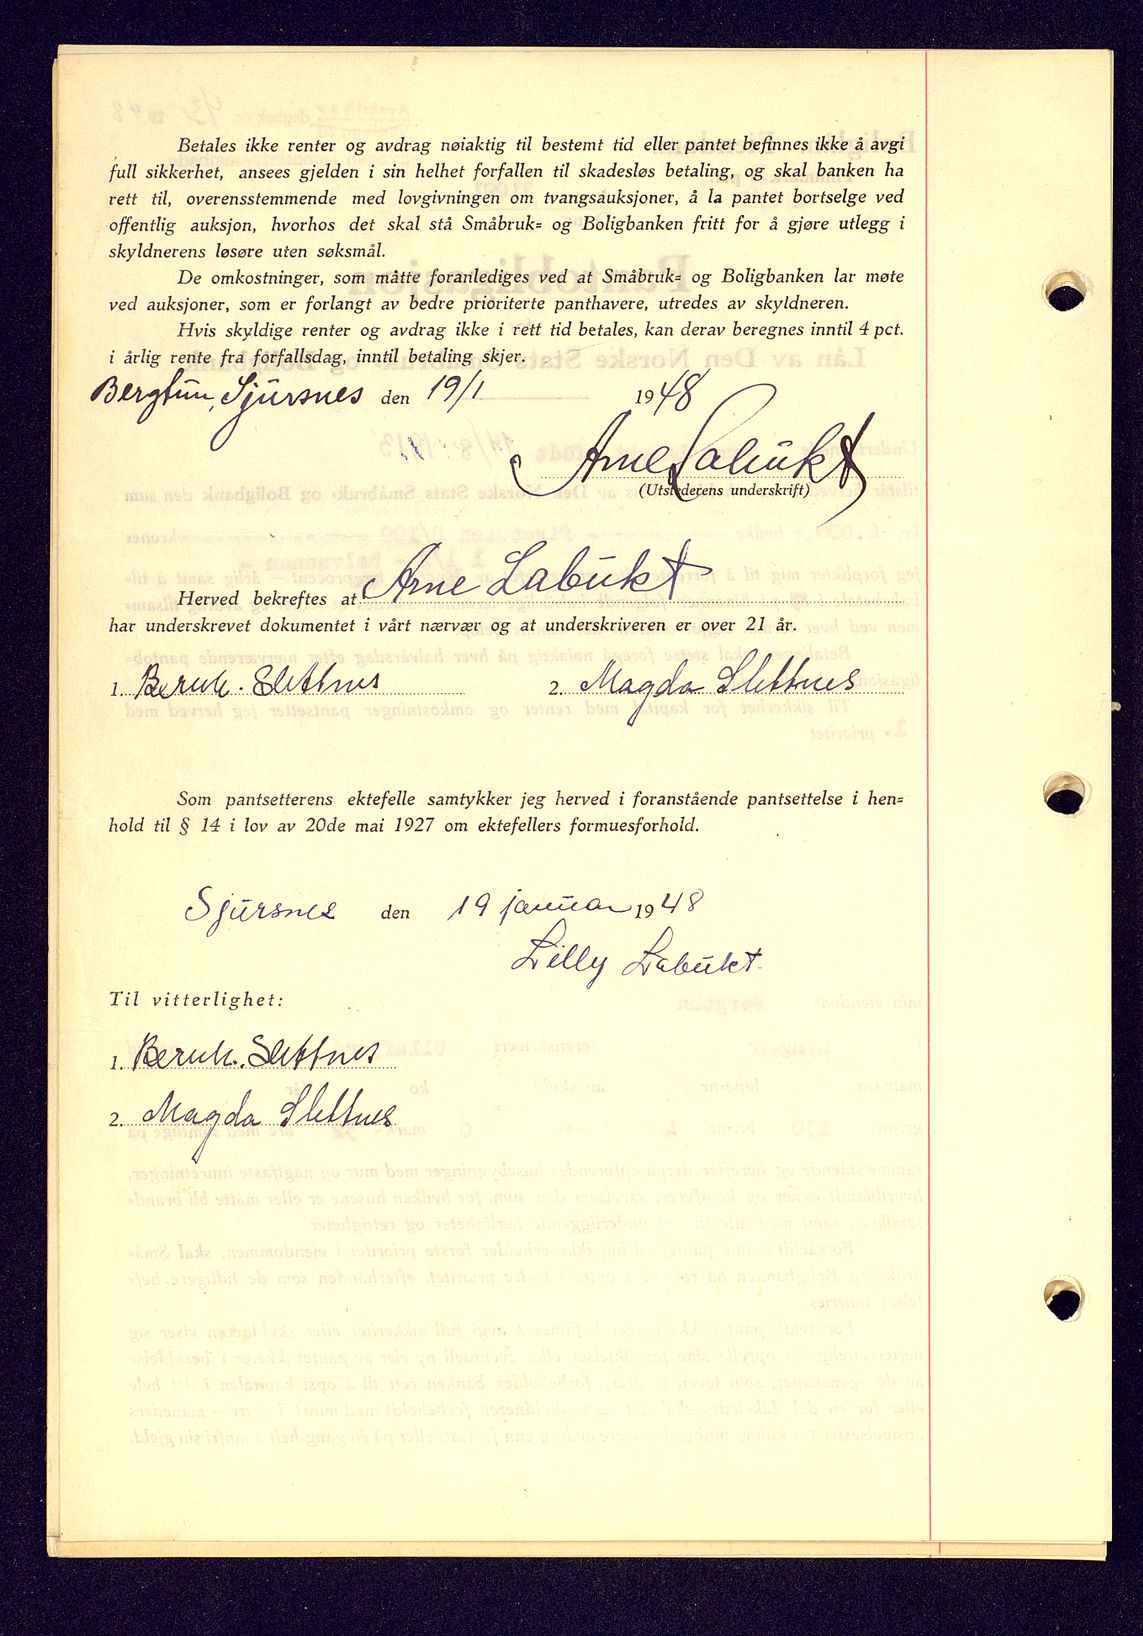 Betales ikke renter og avdrag nøiaktig til bestemt tid eller pantet befinnes ikke å avgi
full sikkerhet, ansees gjelden i sin helhet forfallen til skadesløs betaling, og skal banken ha
rett til, overensstemmende med lovgivningen om tvangsauksjoner, å la pantet bortselge ved
offentlig auksjon, hvorhos det skal stå Småbruk= og Boligbanken fritt for å gjøre utlegg i
skyldnerens løsøre uten søksmål.
De omkostninger, som måtte foranlediges ved at Småbruk= og Boligbanken lar møte
ved auksjoner, som er forlangt av bedre prioriterte panthavere, utredes av skyldneren.
Hvis skyldige renter og avdrag ikke i rett tid betales, kan derav beregnes inntil 4 pct.
i årlig rente fra forfallsdag, inntil betaling skjer.
Bergtun, Sjursnes den 19/1 1948
Arne Labukt
(Utstederens underskrift)
Herved bekreftes at Arne Labukt
har underskrevet dokumentet i vårt nærvær og at underskriveren er over 21 år.
1. Bernh. Slettnes 2. Magda Slettnes
Som pantsetterens ektefelle samtykker jeg herved i foranstående pantsettelse i hen=
hold til § 14 i lov av 20de mai 1927 om ektefellers formuesforhold.
Sjursnes den 19 januar 1948
Lilly Labukt
Til vitterlighet:
1. Bernh. Slettnes
2. Magda Slettnes